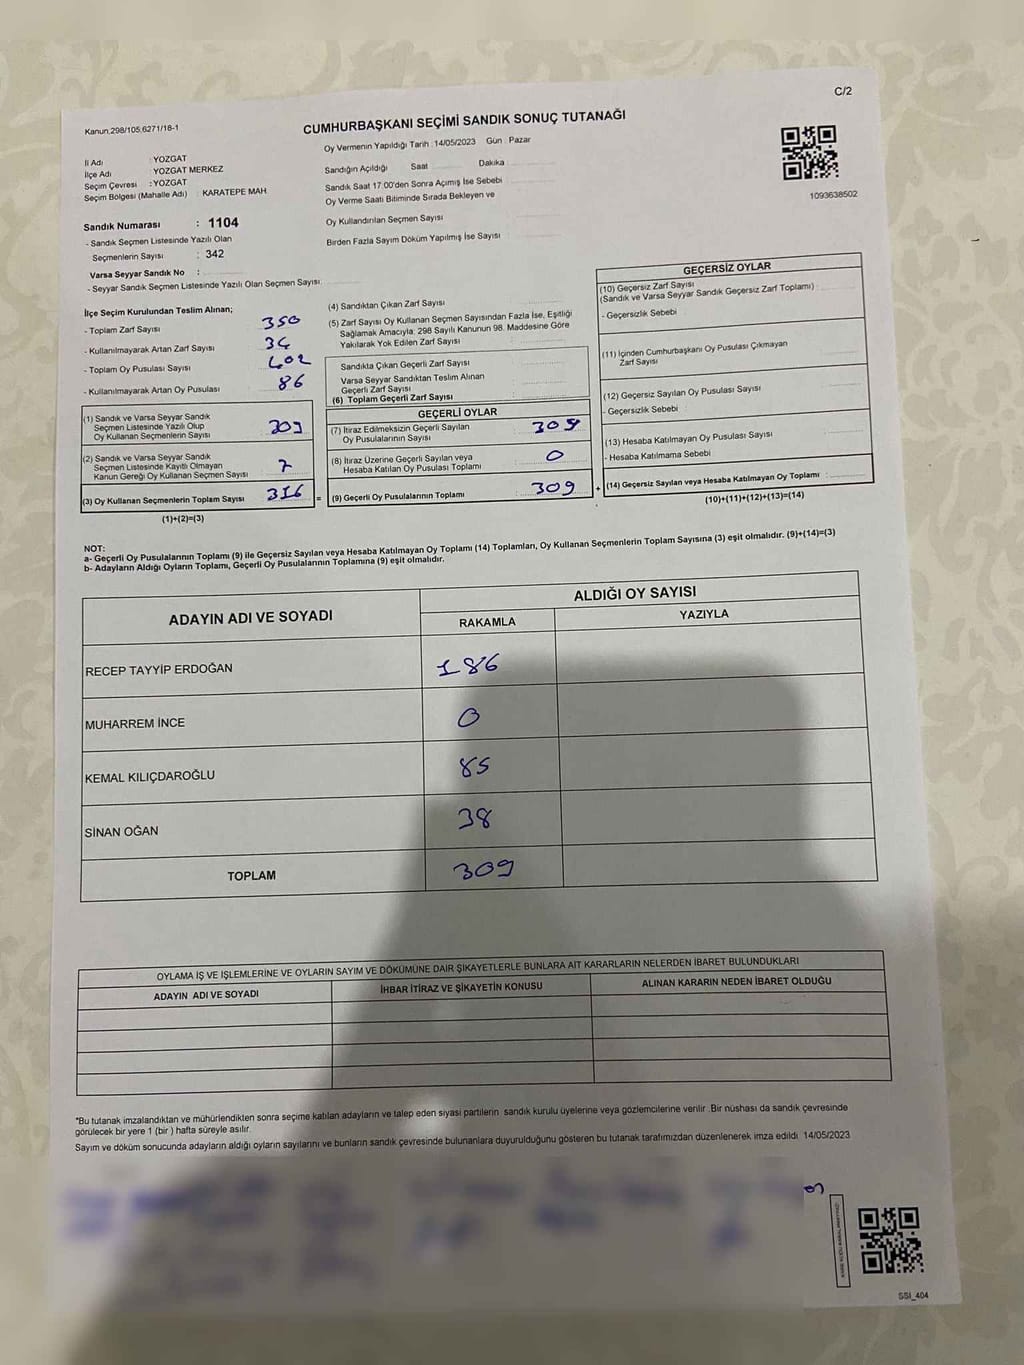 C/2
Kanun,298/105,6271/18-1
CUMHURBAŞKANI SEÇİMİ SANDIK SONUÇ TUTANAĞI
İl Adı : YOZGAT
İlçe Adı : YOZGAT MERKEZ
Seçim Çevresi : YOZGAT
Seçim Bölgesi (Mahalle Adı) : KARATEPE MAH.
Sandık Numarası : 1104
- Sandık Seçmen Listesinde Yazılı Olan
Seçmenlerin Sayısı : 342
Varsa Seyyar Sandık No :
- Seyyar Sandık Seçmen Listesinde Yazılı Olan Seçmen Sayısı:
Oy Vermenin Yapıldığı Tarih : 14/05/2023 Gün : Pazar
Sandığın Açıldığı Saat Dakika
Sandık Saat 17:00'den Sonra Açımış İse Sebebi
Oy Verme Saati Bitiminde Sırada Bekleyen ve
Oy Kullandırılan Seçmen Sayısı
Birden Fazla Sayım Döküm Yapılmış İse Sayısı :
1093638502
İlçe Seçim Kurulundan Teslim Alınan;
- Toplam Zarf Sayısı 350
- Kullanılmayarak Artan Zarf Sayısı 34
- Toplam Oy Pusulası Sayısı 402
- Kullanılmayarak Artan Oy Pusulası 86
(1) Sandık ve Varsa Seyyar Sandık
Seçmen Listesinde Yazılı Olup
Oy Kullanan Seçmenlerin Sayısı 309
(2) Sandık ve Varsa Seyyar Sandık
Seçmen Listesinde Kayıtlı Olmayan
Kanun Gereği Oy Kullanan Seçmen Sayısı 7
(3) Oy Kullanan Seçmenlerin Toplam Sayısı 316 =
(1)+(2)=(3)
(4) Sandıktan Çıkan Zarf Sayısı
(5) Zarf Sayısı Oy Kullanan Seçmen Sayısından Fazla İse, Eşitliği
Sağlamak Amacıyla; 298 Sayılı Kanunun 98. Maddesine Göre
Yakılarak Yok Edilen Zarf Sayısı
Sandıkta Çıkan Geçerli Zarf Sayısı
Varsa Seyyar Sandıktan Teslim Alınan
Geçerli Zarf Sayısı
(6) Toplam Geçerli Zarf Sayısı
GEÇERLİ OYLAR
(7) İtiraz Edilmeksizin Geçerli Sayılan
Oy Pusulalarının Sayısı 309
(8) İtiraz Üzerine Geçerli Sayılan veya
Hesaba Katılan Oy Pusulası Toplamı 0
(9) Geçerli Oy Pusulalarının Toplamı 309 +
GEÇERSİZ OYLAR
(10) Geçersiz Zarf Sayısı
(Sandık ve Varsa Seyyar Sandık Geçersiz Zarf Toplamı)
- Geçersizlik Sebebi
(11) İçinden Cumhurbaşkanı Oy Pusulası Çıkmayan
Zarf Sayısı
(12) Geçersiz Sayılan Oy Pusulası Sayısı
- Geçersizlik Sebebi
(13) Hesaba Katılmayan Oy Pusulası Sayısı
- Hesaba Katılmama Sebebi
(14) Geçersiz Sayılan veya Hesaba Katılmayan Oy Toplamı
(10)+(11)+(12)+(13)=(14)
NOT:
a- Geçerli Oy Pusulalarının Toplamı (9) ile Geçersiz Sayılan veya Hesaba Katılmayan Oy Toplamı (14) Toplamları, Oy Kullanan Seçmenlerin Toplam Sayısına (3) eşit olmalıdır. (9)+(14)=(3)
b- Adayların Aldığı Oyların Toplamı, Geçerli Oy Pusulalarının Toplamına (9) eşit olmalıdır.
ADAYIN ADI VE SOYADI ALDIĞI OY SAYISI
RAKAMLA YAZIYLA
RECEP TAYYİP ERDOĞAN 186
MUHARREM İNCE 0
KEMAL KILIÇDAROĞLU 85
SİNAN OĞAN 38
TOPLAM 309
OYLAMA İŞ VE İŞLEMLERİNE VE OYLARIN SAYIM VE DÖKÜMÜNE DAİR ŞİKAYETLERLE BUNLARA AİT KARARLARIN NELERDEN İBARET BULUNDUKLARI
ADAYIN ADI VE SOYADI İHBAR İTİRAZ VE ŞİKAYETİN KONUSU ALINAN KARARIN NEDEN İBARET OLDUĞU
*Bu tutanak imzalandıktan ve mühürlendikten sonra seçime katılan adayların ve talep eden siyasi partilerin sandık kurulu üyelerine veya gözlemcilerine verilir. Bir nüshası da sandık çevresinde
görülecek bir yere 1 (bir) hafta süreyle asılır.
Sayım ve döküm sonucunda adayların aldığı oyların sayılarını ve bunların sandık çevresinde bulunanlara duyurulduğunu gösteren bu tutanak tarafımızdan düzenlenerek imza edildi. 14/05/2023
SSI_404